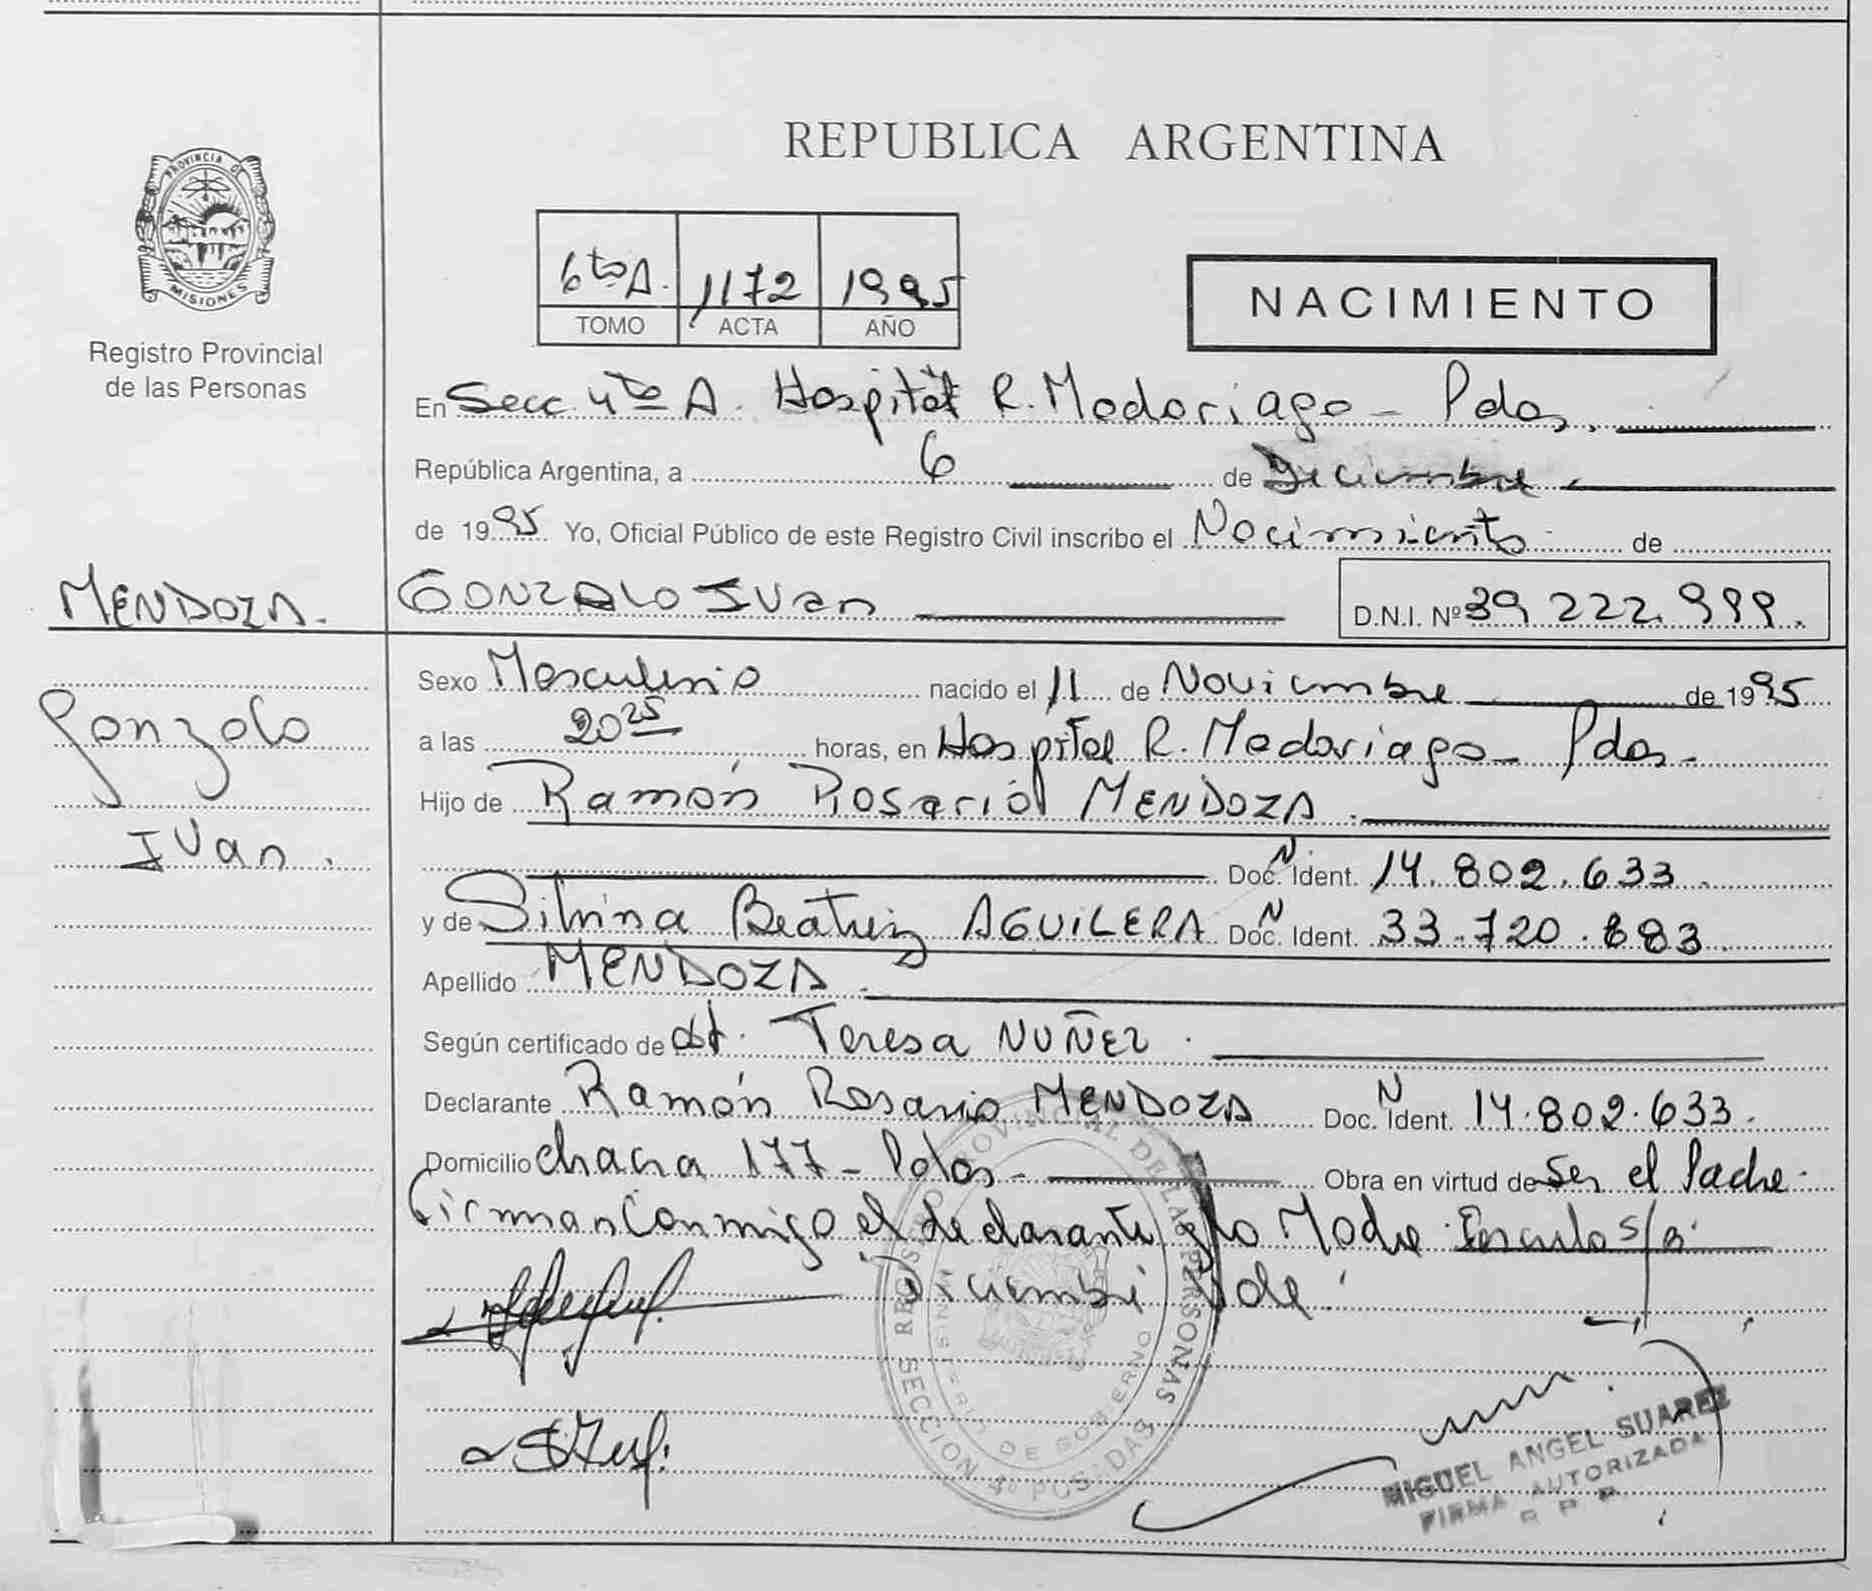 REPUBLICA ARGENTINA
PROVINCIA DE
MISIONES
Registro Provincial
de las Personas
6to A. 1172 1995
TOMO ACTA AÑO
NACIMIENTO
En Secc 4ta A. Hospital R. Madariaga - Pdas.
República Argentina, a 6 de Diciembre
de 1995 Yo, Oficial Público de este Registro Civil inscribo el Nacimiento de
MENDOZA. GONZALO IVan D.N.I. Nº 39.222.999.
Sexo Masculino nacido el 11 de Noviembre de 1995
Gonzalo
IVan.
a las 20 25 horas, en Hospital R. Madariaga - Pdas.
Hijo de Ramón Rosario MENDOZA.
Doc. Ident. N 14.802.633
y de Silvina Beatriz AGUILERA Doc. Ident. N 33.720.883
Apellido MENDOZA.
Según certificado de Teresa NUÑEZ.
Declarante Ramón Rosario MENDOZA Doc. Ident. N 14.802.633.
Domicilio chacra 177 - Pdas. Obra en virtud de Ser el Padre.
Firman Conmigo el declarante y la Madre. s/r
Diciembre Vale.
REGISTRO PROVINCIAL DE LAS PERSONAS
MINISTERIO DE GOBIERNO
SECCION 4º POSADAS
MIGUEL ANGEL SUAREZ
FIRMA AUTORIZADA
R P P